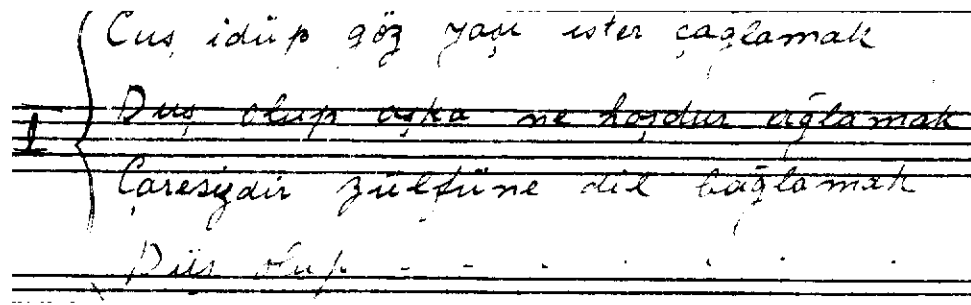 Cuş idüp göz yaşı ister çağlamak
1 Duş olup aşka ne hoşdur ağlamak
Çaresizdir zülfüne dil bağlamak
Düş olup - - - - - - -